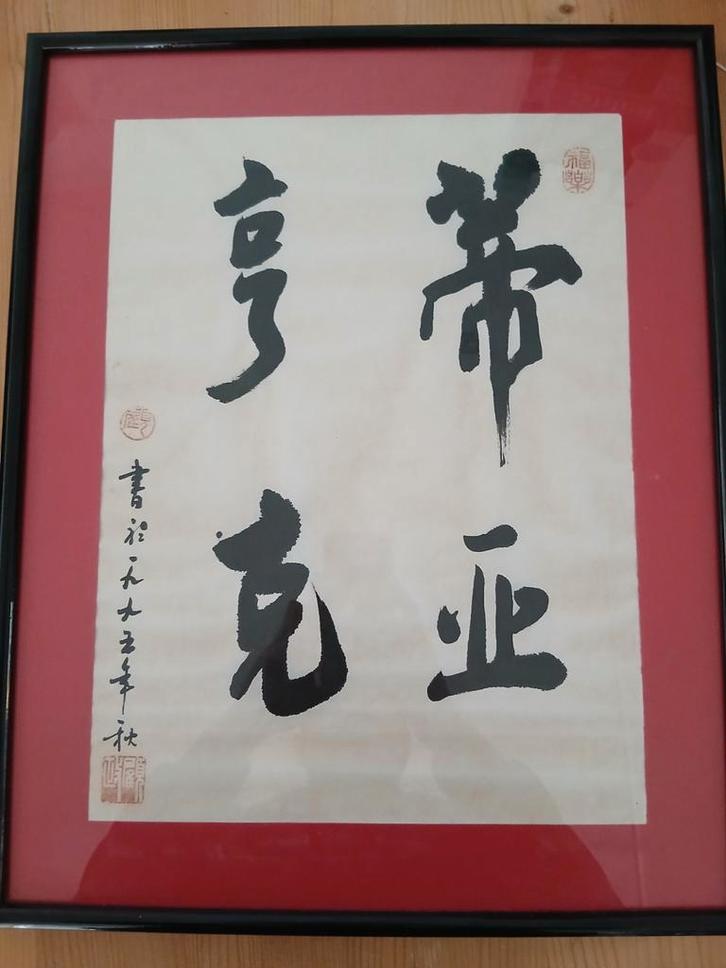 蒂亚
亨克
書於一九九五年秋
福樂